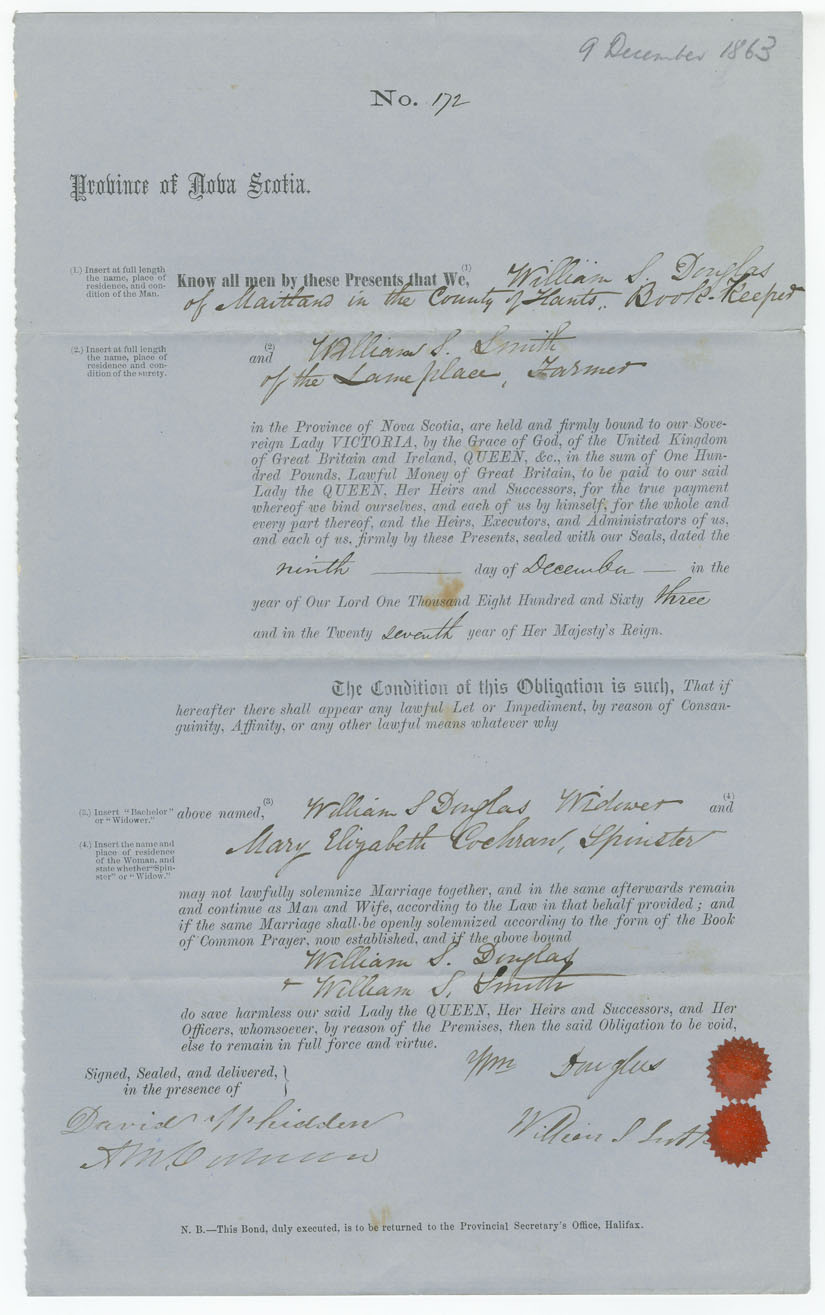 9 December 1863
No. 172
Province of Nova Scotia.
(1.) Insert at full length
the name, place of
residence, and con-
dition of the Man.
Know all men by these Presents that We, (1) William S. Douglas
of Maitland in the County of Hants, Book-Keeper
(2.) Insert at full length
the name, place of
residence and con-
dition of the surety.
and (2) William S. Smith
of the Same place, Farmer
in the Province of Nova Scotia, are held and firmly bound to our Sove-
reign Lady VICTORIA, by the Grace of God, of the United Kingdom
of Great Britain and Ireland, QUEEN, &c., in the sum of One Hun-
dred Pounds, Lawful Money of Great Britain, to be paid to our said
Lady the QUEEN, Her Heirs and Successors, for the true payment
whereof we bind ourselves, and each of us by himself, for the whole and
every part thereof, and the Heirs, Executors, and Administrators of us,
and each of us, firmly by these Presents, sealed with our Seals, dated the
ninth day of December in the
year of Our Lord One Thousand Eight Hundred and Sixty three
and in the Twenty seventh year of Her Majesty's Reign.
The Condition of this Obligation is such, That if
hereafter there shall appear any lawful Let or Impediment, by reason of Consan-
guinity, Affinity, or any other lawful means whatever why
(3.) Insert "Bachelor"
or "Widower."
above named, (3) William S Douglas Widower and (4)
(4.) Insert the name and
place of residence
of the Woman, and
state whether "Spin-
ster" or "Widow."
Mary Elizabeth Cochran, Spinster
may not lawfully solemnize Marriage together, and in the same afterwards remain
and continue as Man and Wife, according to the Law in that behalf provided; and
if the same Marriage shall be openly solemnized according to the form of the Book
of Common Prayer, now established, and if the above bound
William S. Douglas
+ William S. Smith
do save harmless our said Lady the QUEEN, Her Heirs and Successors, and Her
Officers, whomsoever, by reason of the Premises, then the said Obligation to be void,
else to remain in full force and virtue.
Wm Douglas
Signed, Sealed, and delivered, }
in the presence of
David Whidden
William S Smith
N. B.—This Bond, duly executed, is to be returned to the Provincial Secretary's Office, Halifax.